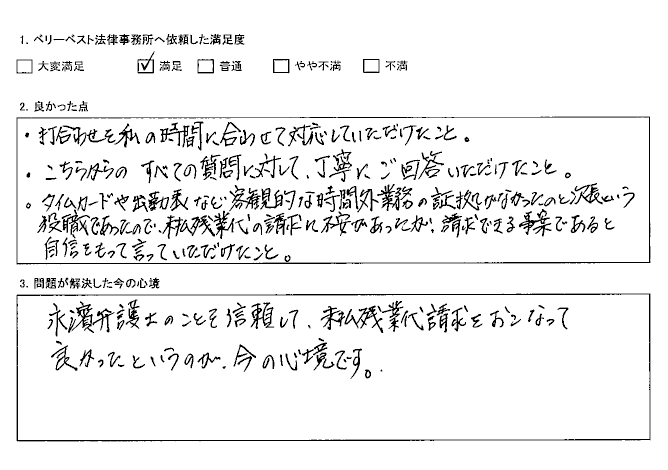 1. ベリーベスト法律事務所へ依頼した満足度
□ 大変満足 ☑ 満足 □ 普通 □ やや不満 □ 不満
2. 良かった点
・打合わせを私の時間に合わせて対応していただけたこと。
・こちらからの すべての質問に対して、丁寧に ご回答いただけたこと。
。タイムカードや出勤表など客観的な時間外業務の証拠がなかったのと次長という
役職であったので、未払残業代の請求に不安があったが、請求できる事案であると
自信をもって言っていただけたこと。
3. 問題が解決した今の心境
永濱弁護士のことを信頼して、未払残業代請求をおこなって
良かったというのが、今の心境です。